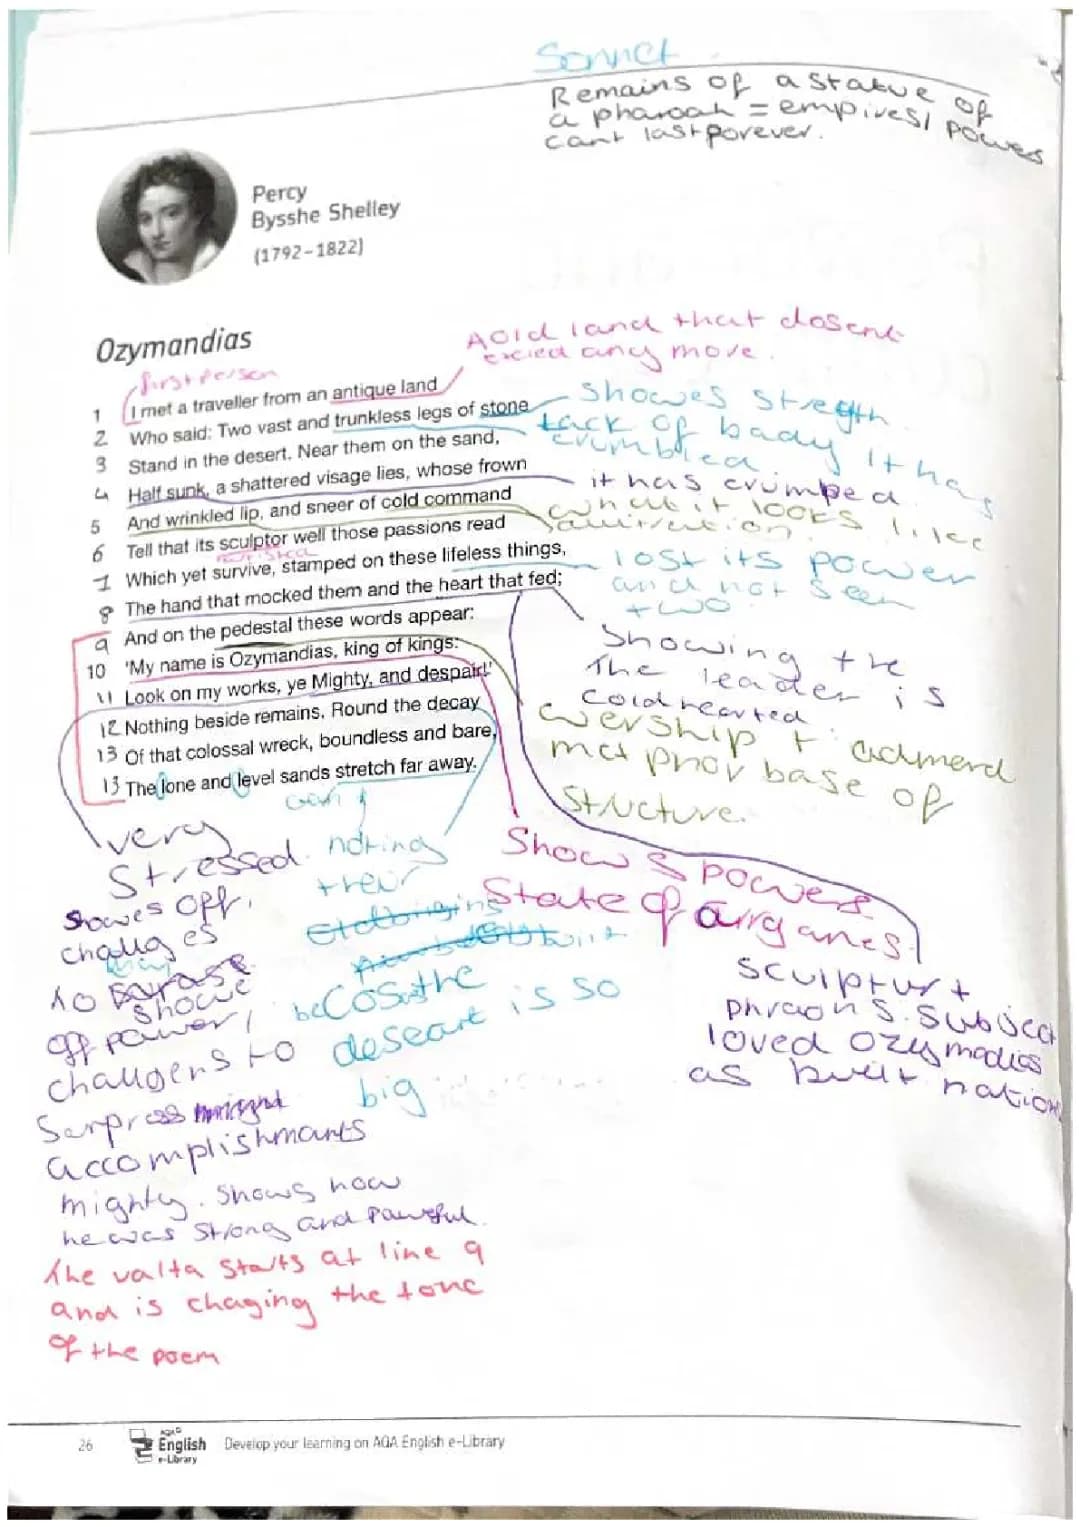 Sonnet
Remains of a statue of
a pharoah = empires/ power
cant last forever.
Percy
Bysshe Shelley
(1792-1822)
Ozymandias
A old land that dosent
any more.
first person
1 I met a traveller from an antique land
2 Who said: Two vast and trunkless legs of stone
3 Stand in the desert. Near them on the sand,
4 Half sunk, a shattered visage lies, whose frown
5 And wrinkled lip, and sneer of cold command
6 Tell that its sculptor well those passions read
7 Which yet survive, stamped on these lifeless things,
8 The hand that mocked them and the heart that fed;
9 And on the pedestal these words appear:
10 'My name is Ozymandias, king of kings:
11 Look on my works, ye Mighty, and despair!'
12 Nothing beside remains. Round the decay
13 Of that colossal wreck, boundless and bare,
13 The lone and level sands stretch far away.
showes stregth
Lack of bady it has
crumbled.
it has crumped
what it looks like
lost its power
and not seen
two
Showing the
The leader is
cold hearted
wership + admerd
metphor base of
Structure.
Shows power
State of arrganes
sculptur +
phraoh s. subject
loved ozymodias
as built nation
very
Stressed.
showes off,
challges
to
showe
off power,
challgers to
Serpress
accomplishmants
mighty. Shows how
he was strong and powerful.
notring
becos the
deseart is so
big
The valta starts at line 9
and is chaging the tone
of the poem
26
AQA
English
e-Library
Develop your learning on AQA English e-Library